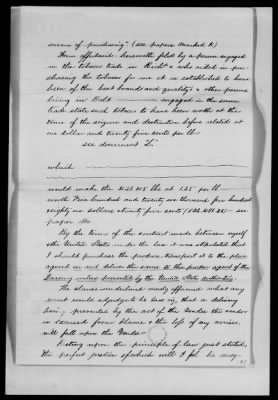 means of purchasing" (see paper marked K)
From affidavits herewith filed by a person engaged
in the tobacco trade in Richd & who aided in pur-
chasing the tobacco for me it is established to have
been of the best brands and quality & other persons
living in Balt engaged in the same
trade state such tobacco to have been worth at the
time of the seizure and destruction before related at
one dollar and twenty five cents per lb
see document L"
which
would make the 421.145 lbs at 1.25 per lb
worth Five hundred and twenty six thousand five hundred
eighty one dollars seventy five cents see
paper
By the terms of the contract made between myself
& the United States under the law it was stipulated that
I should purchase the produce transport it to the place
agreed on and deliver the same to the proper agent of the
Treasury unless prevented by the United States authorities.
The clause underlined merely affirmed what any
court would adjudge to be law viz, that a delivery
being prevented by the act of the Vendee the vendor
is excused from blame & the loss if any arises,
will fall upon the Vendee
Acting upon the principle of law just stated,
the perfect justice of which will I feel be recog-